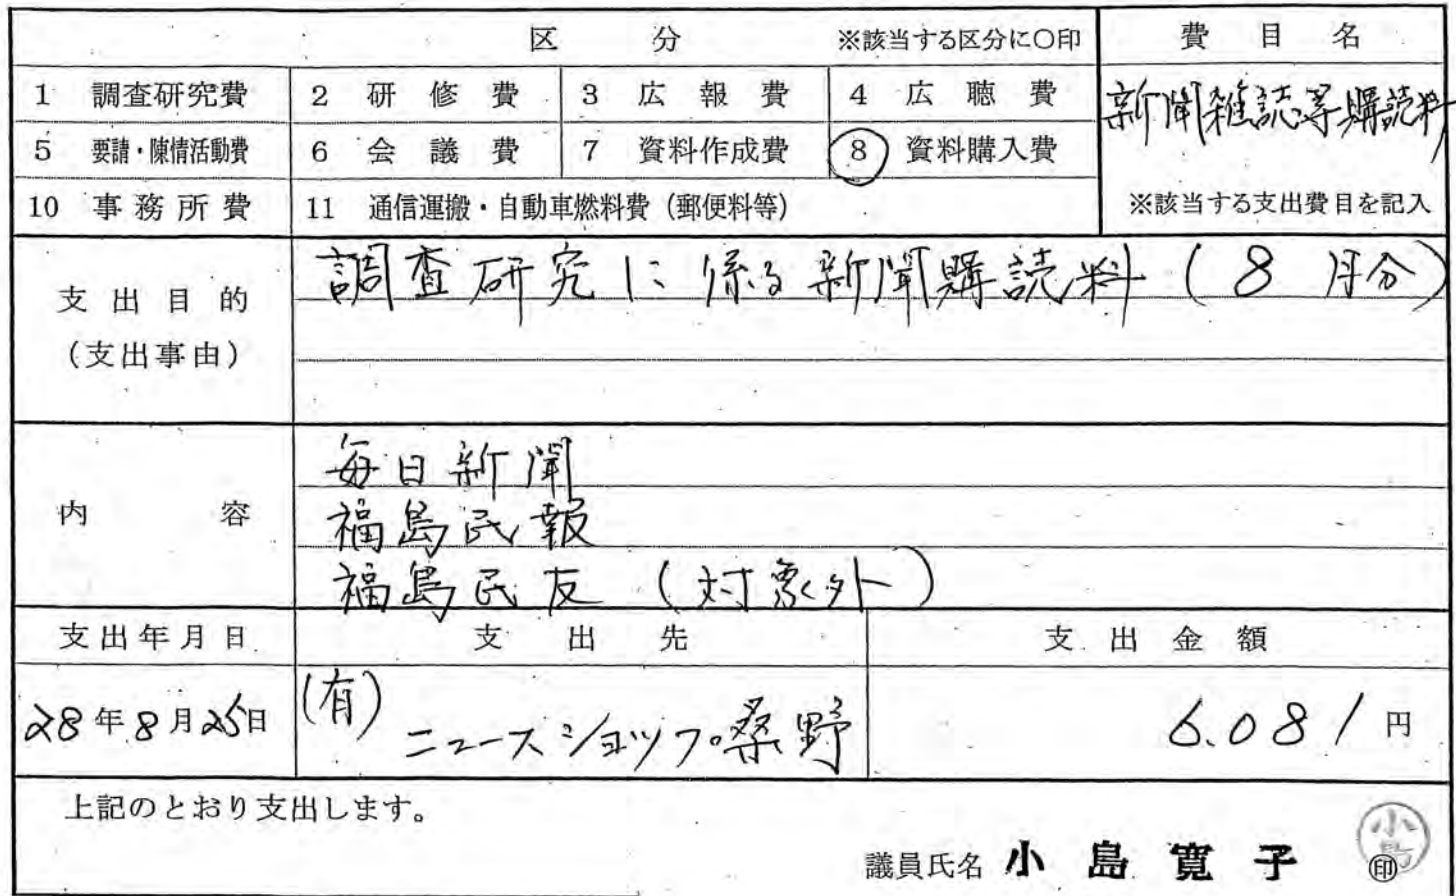 区 分 ※該当する区分に〇印 費 目 名
1 調査研究費 2 研 修 費 3 広 報 費 4 広 聴 費 新聞雑誌等購読料
5 要請・陳情活動費 6 会 議 費 7 資料作成費 8 資料購入費
10 事 務 所 費 11 通信運搬・自動車燃料費（郵便料等） ※該当する支出費目を記入
支 出 目 的 調査研究に係る新聞購読料（8 月分）
（支出事由）
毎日新聞
内 容 福島民報
福島民友（対象外）
支出年月日 支 出 先 支 出 金 額
28年8月25日 (有)ニュースショップ桑野 6.081円
上記のとおり支出します。
議員氏名 小 島 寛 子 小島 ㊞